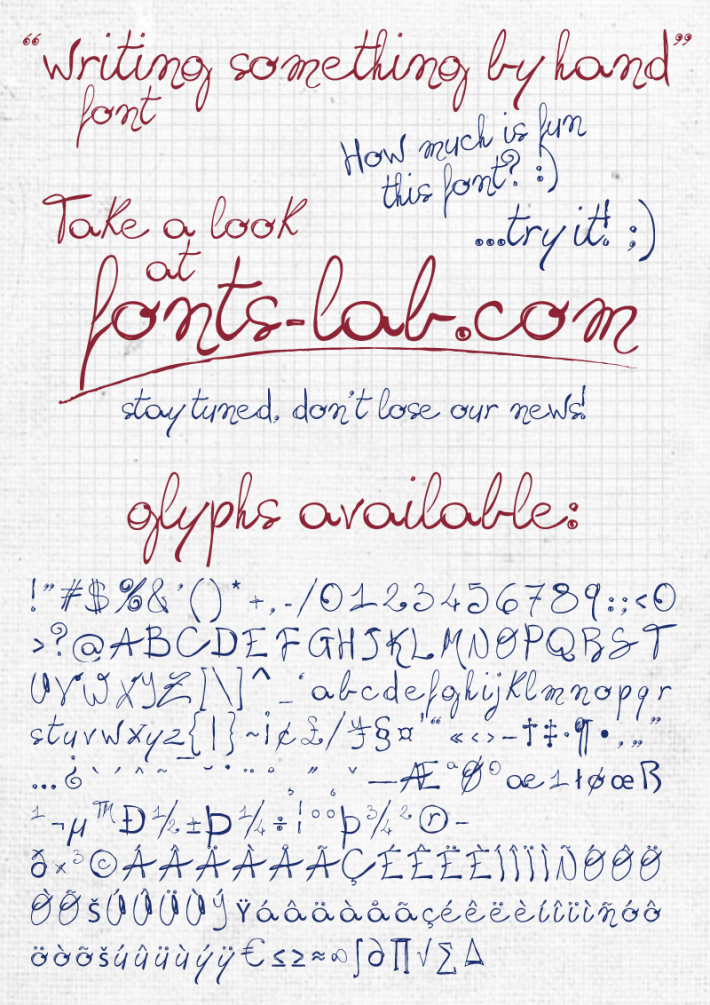 “writing something by hand”
font
How much is fun
this font? :)
...try it! ;)
Take a look
at
fonts-lab.com
stay tuned, don't lose our news!
glyphs available:
!"#$%&'()*+,-/0123456789:;<O
>?@ABCDEFGHIJKLMNOPQRST
UVWXYZ[\]^_`abcdefghijklmnopqr
stuvwxyz{|}~¡¢£/¥§¤'“«‹›–†‡·¶•‚„”
...¿`´ˆ˜¯˘˙¨˚¸˝˛ˇ—ƪØºæıłøœß
¹¬µ™Ð½±Þ¼÷¦°°þ¾²®-
ð×³©ÁÂÄÀÅÃÇÉÊËÈÍÎÏÌÑÓÔÖ
ÒÕšÚÛÜÙÝŸáâäàåãçéêëèíîïìñóô
öòõšúûüùýÿ€≤≥≈∞∫∂∏√∑∆